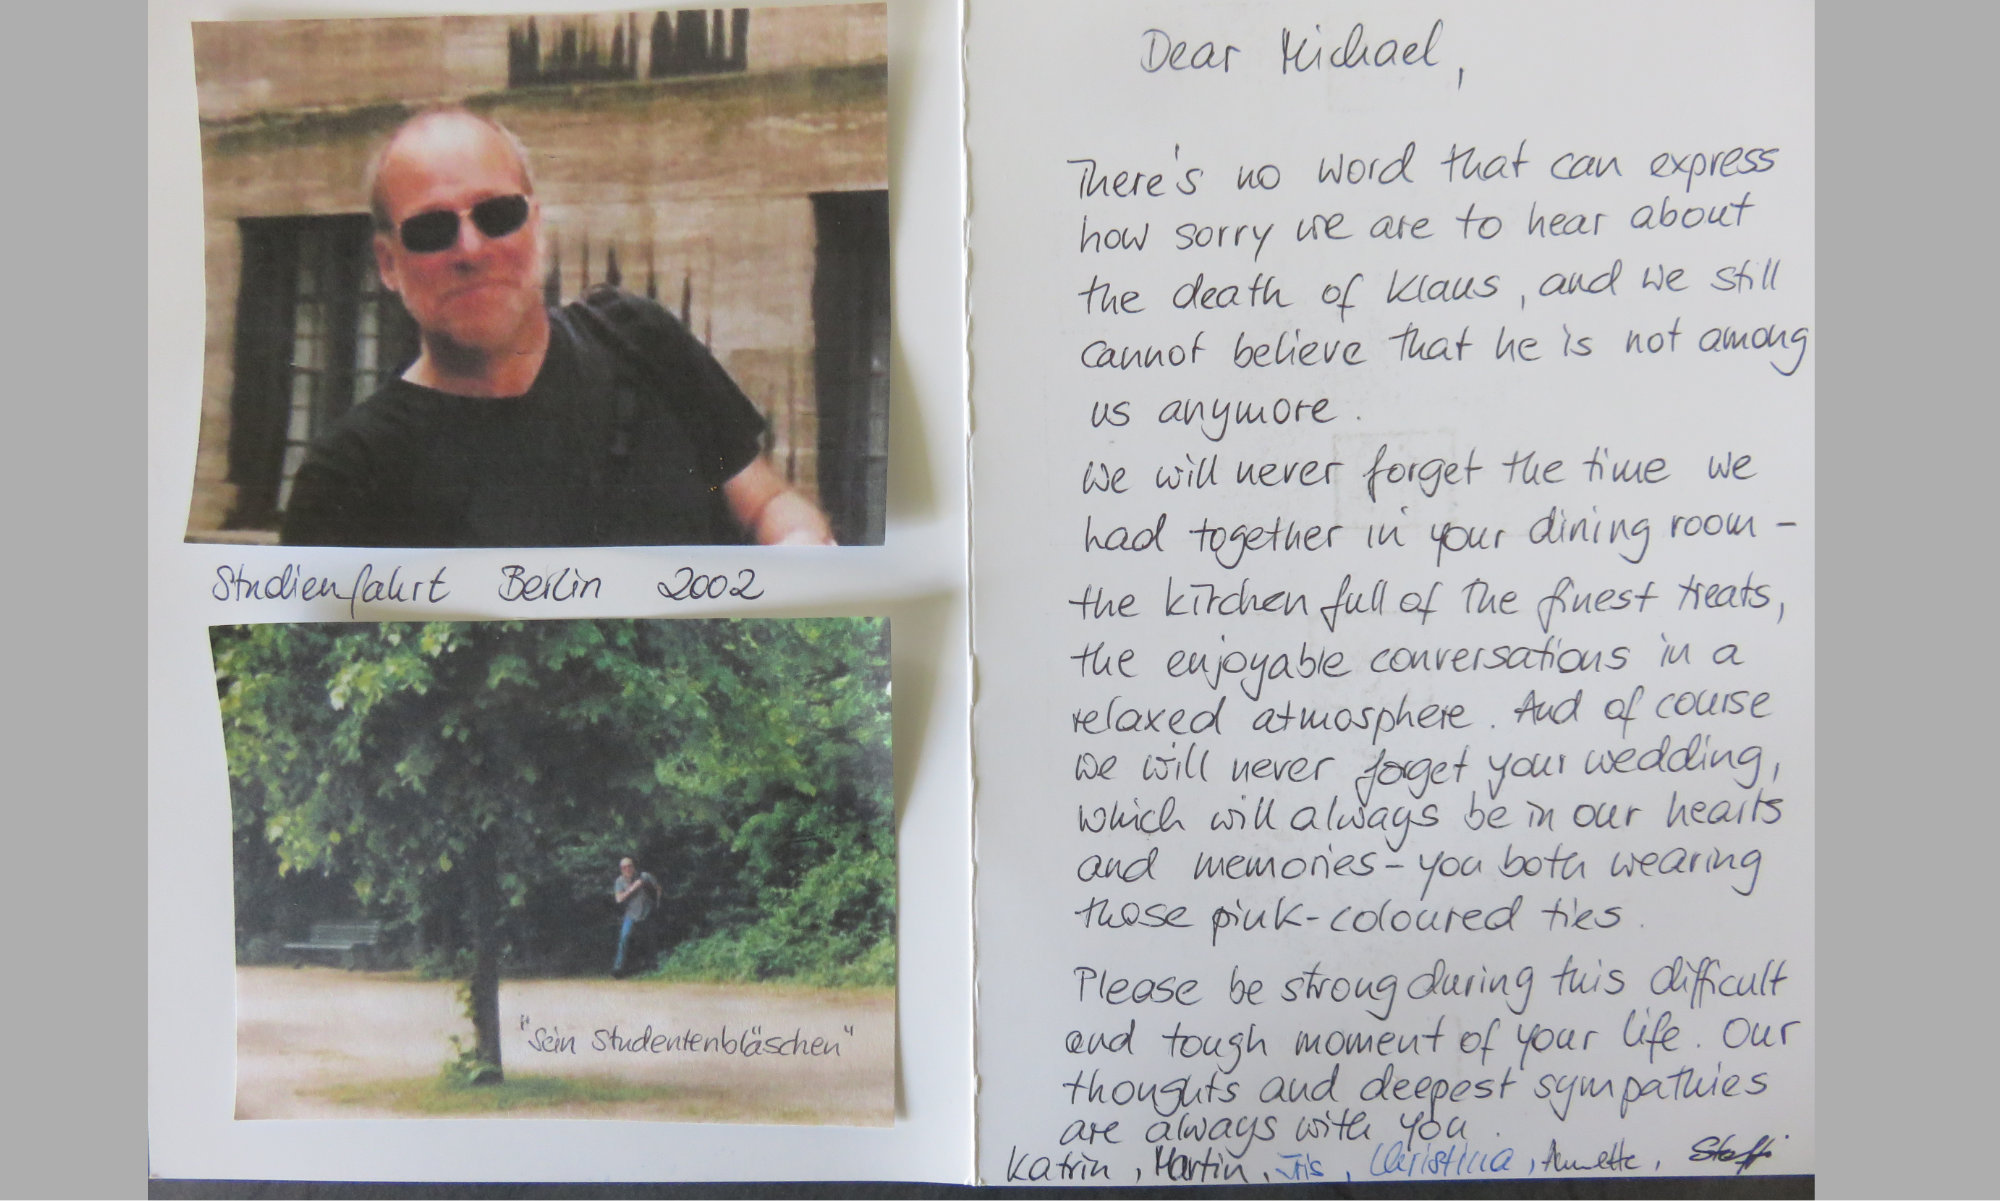 Studienfahrt Berlin 2002
"Sein Studentenbläschen"
Dear Michael,
There's no word that can express
how sorry we are to hear about
the death of Klaus, and we still
cannot believe that he is not among
us anymore.
We will never forget the time we
had together in your dining room –
the kitchen full of the finest treats,
the enjoyable conversations in a
relaxed atmosphere. And of course
we will never forget your wedding,
which will always be in our hearts
and memories – you both wearing
those pink-coloured ties.
Please be strong during this difficult
and tough moment of your life. Our
thoughts and deepest sympathies
are always with you.
Katrin, Martin, Iris, Christina, Annette, Steffi